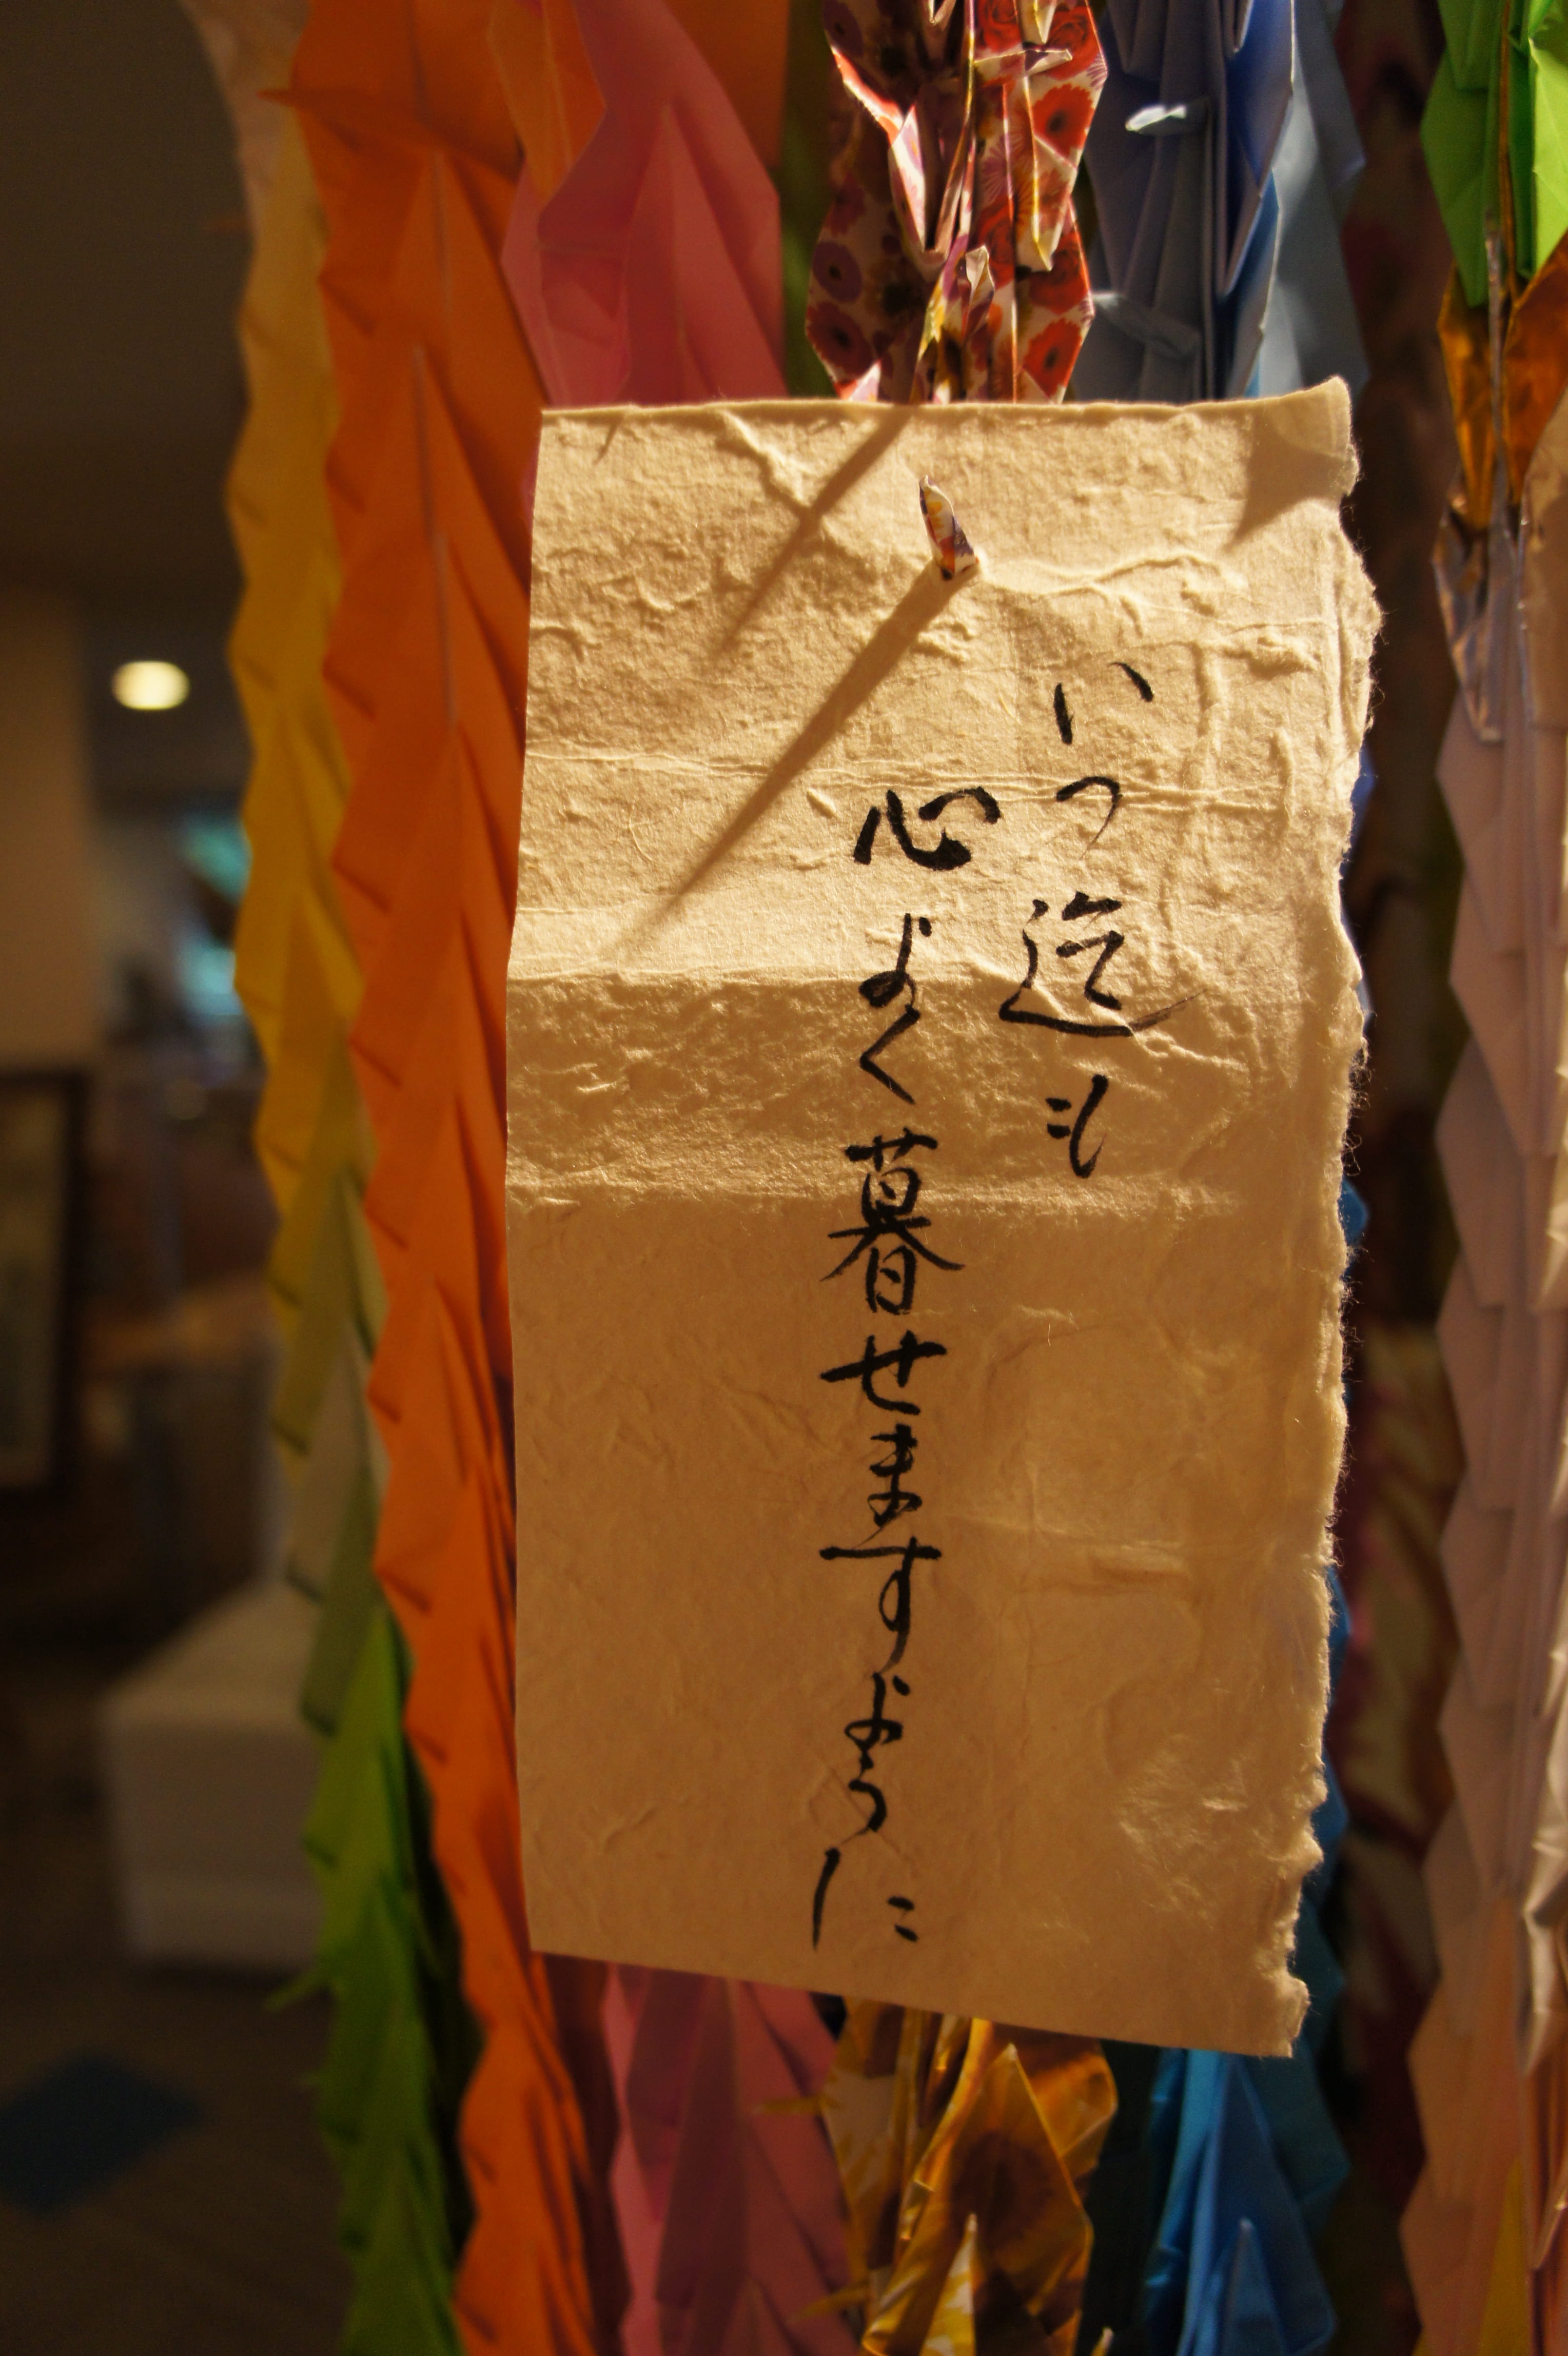 いつ迄も
心よく暮せますように